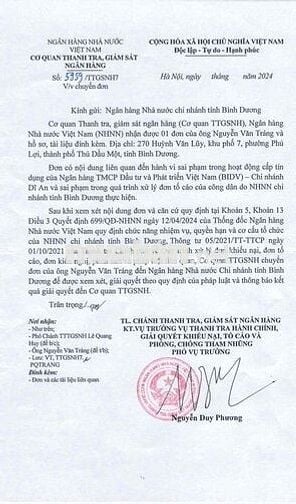 NGÂN HÀNG NHÀ NƯỚC
VIỆT NAM
CƠ QUAN THANH TRA, GIÁM SÁT
NGÂN HÀNG
CỘNG HÒA XÃ HỘI CHỦ NGHĨA VIỆT NAM
Độc lập - Tự do - Hạnh phúc
Số: /TTGSNH7
V/v chuyển đơn
Hà Nội, ngày tháng năm 2024
Kính gửi: Ngân hàng Nhà nước chi nhánh tỉnh Bình Dương
Cơ quan Thanh tra, giám sát ngân hàng (Cơ quan TTGSNH), Ngân hàng
Nhà nước Việt Nam (NHNN) nhận được 01 đơn của ông Nguyễn Văn Tráng và
hồ sơ, tài liệu đính kèm. Địa chỉ: 270 Huỳnh Văn Lũy, khu phố 7, phường Phú
Lợi, thành phố Thủ Dầu Một, tỉnh Bình Dương.
Đơn có nội dung liên quan đến hành vi sai phạm trong hoạt động cấp tín
dụng của Ngân hàng TMCP Đầu tư và Phát triển Việt Nam (BIDV) – Chi nhánh
Dĩ An và sai phạm trong quá trình xử lý đơn tố cáo của công dân do NHNN chi
nhánh tỉnh Bình Dương thực hiện.
Sau khi xem xét nội dung đơn và căn cứ quy định tại Khoản 5, Khoản 13
Điều 3 Quyết định 699/QĐ-NHNN ngày 12/04/2024 của Thống đốc Ngân hàng
Nhà nước Việt Nam quy định chức năng nhiệm vụ, quyền hạn và cơ cấu tổ chức
của NHNN chi nhánh tỉnh Bình Dương, Thông tư 05/2021/TT-TTCP ngày
01/10/2021 đơn khiếu nại, đơn tố
cáo, đơn kiến nghị, Cơ quan TTGSNH chuyển
đơn của ông Nguyễn Văn Tráng đến Ngân hàng Nhà nước Chi nhánh tỉnh Bình
Dương để được xem xét, giải quyết theo quy định của pháp luật và thông báo kết
quả giải quyết đến Cơ quan TTGSNH.
Trân trọng./.
Nơi nhận:
- Như trên;
- Phó Chánh TTGSNH Lê Quang
Huy (để b/c);
- Ông Nguyễn Văn Tráng (để t/b);
- Lưu: VT, TTGSNH7.
PQTRANG
Đính kèm:
- Đơn và các tài liệu liên quan
TL. CHÁNH THANH TRA, GIÁM SÁT NGÂN HÀNG
KT.VỤ TRƯỞNG VỤ THANH TRA HÀNH CHÍNH,
GIẢI QUYẾT KHIẾU NẠI, TỐ CÁO VÀ
PHÒNG, CHỐNG THAM NHŨNG
PHÓ VỤ TRƯỞNG
Nguyễn Duy Phương